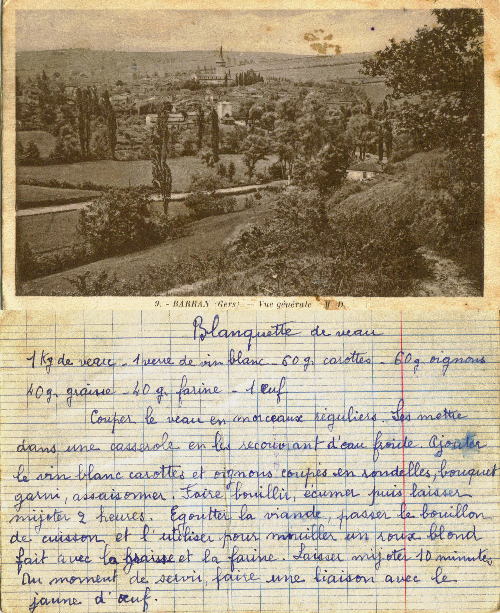 9. - BARRAN (Gers) - Vue générale - M. D.
Blanquette de veau
1 Kg de veau - 1 verre de vin blanc - 60 g. carottes - 60 g. oignons
40 g. graisse - 40 g. farine - 1 œuf
Couper le veau en morceaux réguliers. Les mettre
dans une casserole en les recouvrant d'eau froide. Ajouter
le vin blanc carottes et oignons coupés en rondelles, bouquet
garni, assaisonner. Faire bouillir, écumer puis laisser
mijoter 2 heures. Egoutter la viande, passer le bouillon
de cuisson et l'utiliser pour mouiller un roux blond
fait avec la graisse et la farine. Laisser mijoter 10 minutes,
Au moment de servir, faire une liaison avec le
jaune d'œuf.